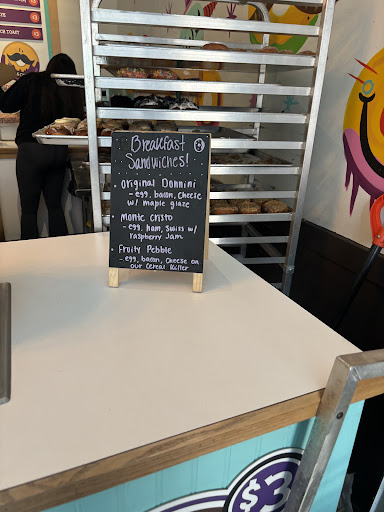 Breakfast
Sandwiches!
• Original Donnini
- egg, bacon, cheese
w/ maple glaze
• Monte Cristo
- egg, ham, swiss w/
raspberry Jam
• Fruity Pebble
- egg, bacon, cheese on
our Cereal Killer
$3